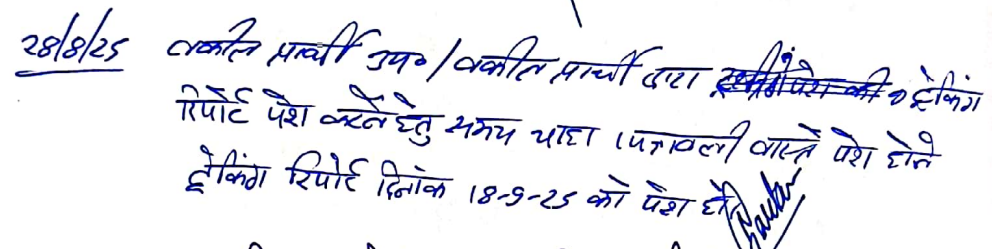 28/8/25 वकील प्रार्थी उप०/वकील प्रार्थी द्वारा ट्रेकिंग
रिपोर्ट पेश करने हेतु समय चाहा। पत्रावली वास्ते पेश होने
ट्रेकिंग रिपोर्ट दिनांक 18-9-25 को पेश हो